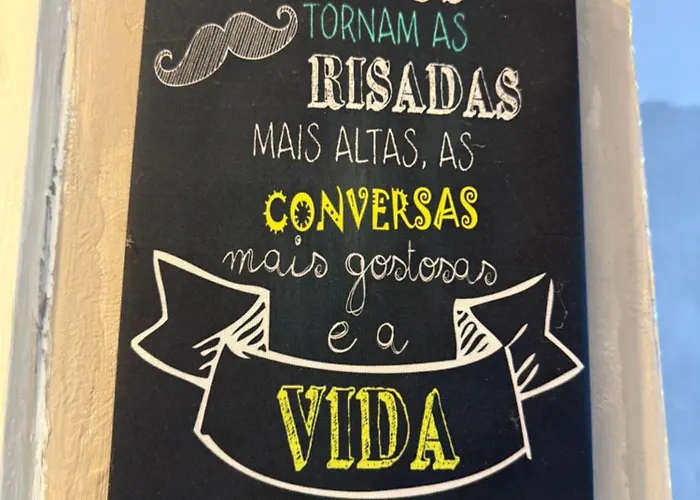 TORNAM AS
RISADAS
MAIS ALTAS, AS
CONVERSAS
mais gostosas
e a
VIDA